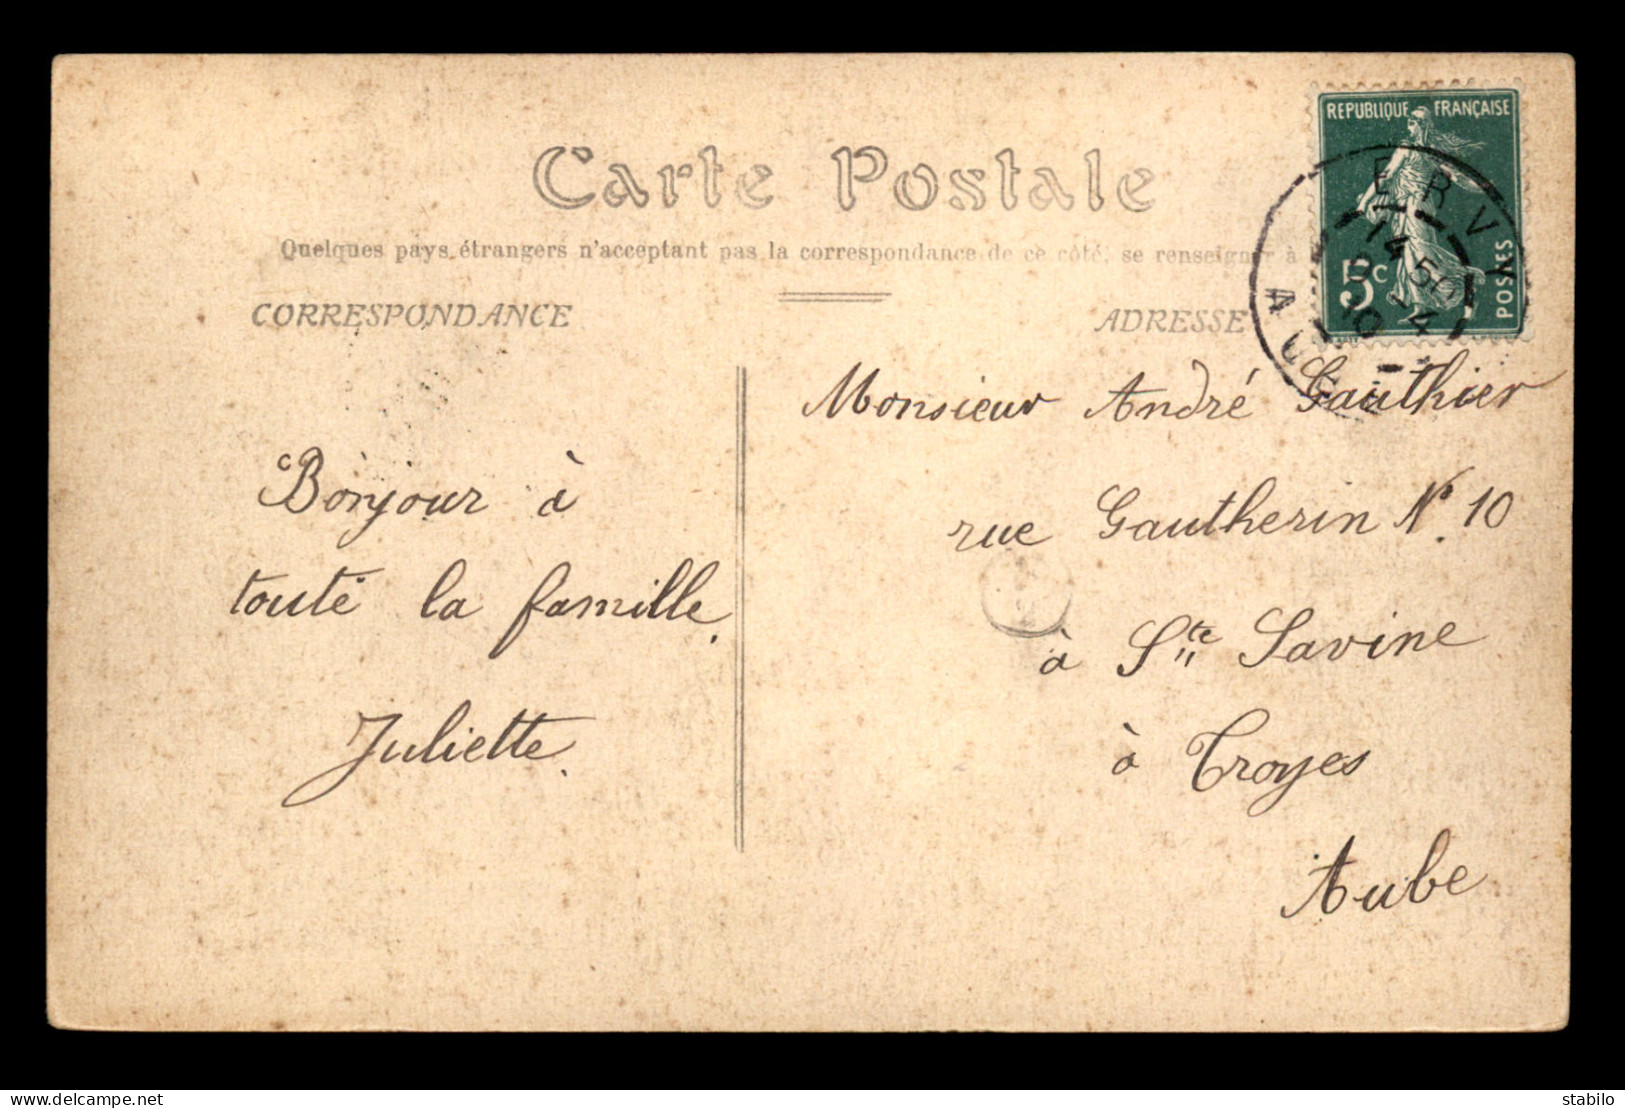 Carte Postale
Quelques pays étrangers n'acceptant pas la correspondance de ce côté, se renseigner à
CORRESPONDANCE
ADRESSE
REPUBLIQUE FRANÇAISE
POSTES
5c
ERVY
14 50
10
AUBE
Bonjour à
toute la famille.
Juliette.
Monsieur André Gauthier
rue Gautherin N° 10
à Ste Savine
à Troyes
Aube
delcampe.net
stabilo